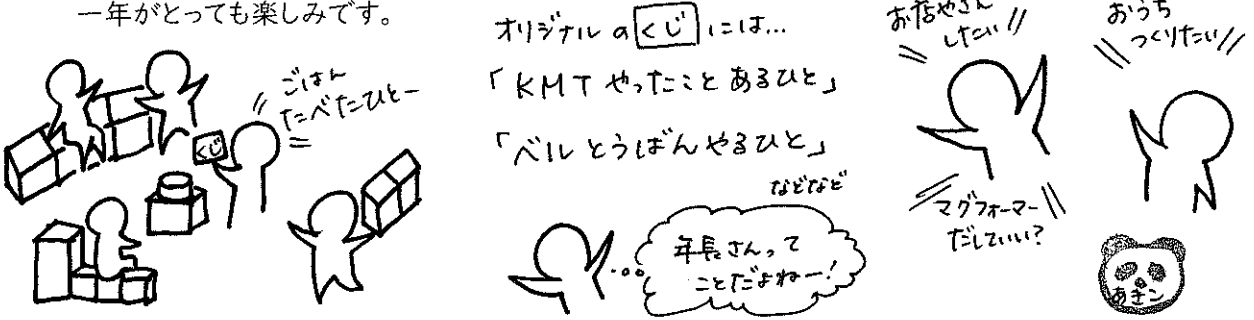 一年がとっても楽しみです。
ごはん
たべたひとー
くじ
オリジナルのくじには…
「KMTやったことあるひと」
「ベルとうばんやるひと」
などなど
年長さんって
ことだよねー!
お店やさん
したい!!
マグフォーマー
だしていい?
おうち
つくりたい!!
あきン